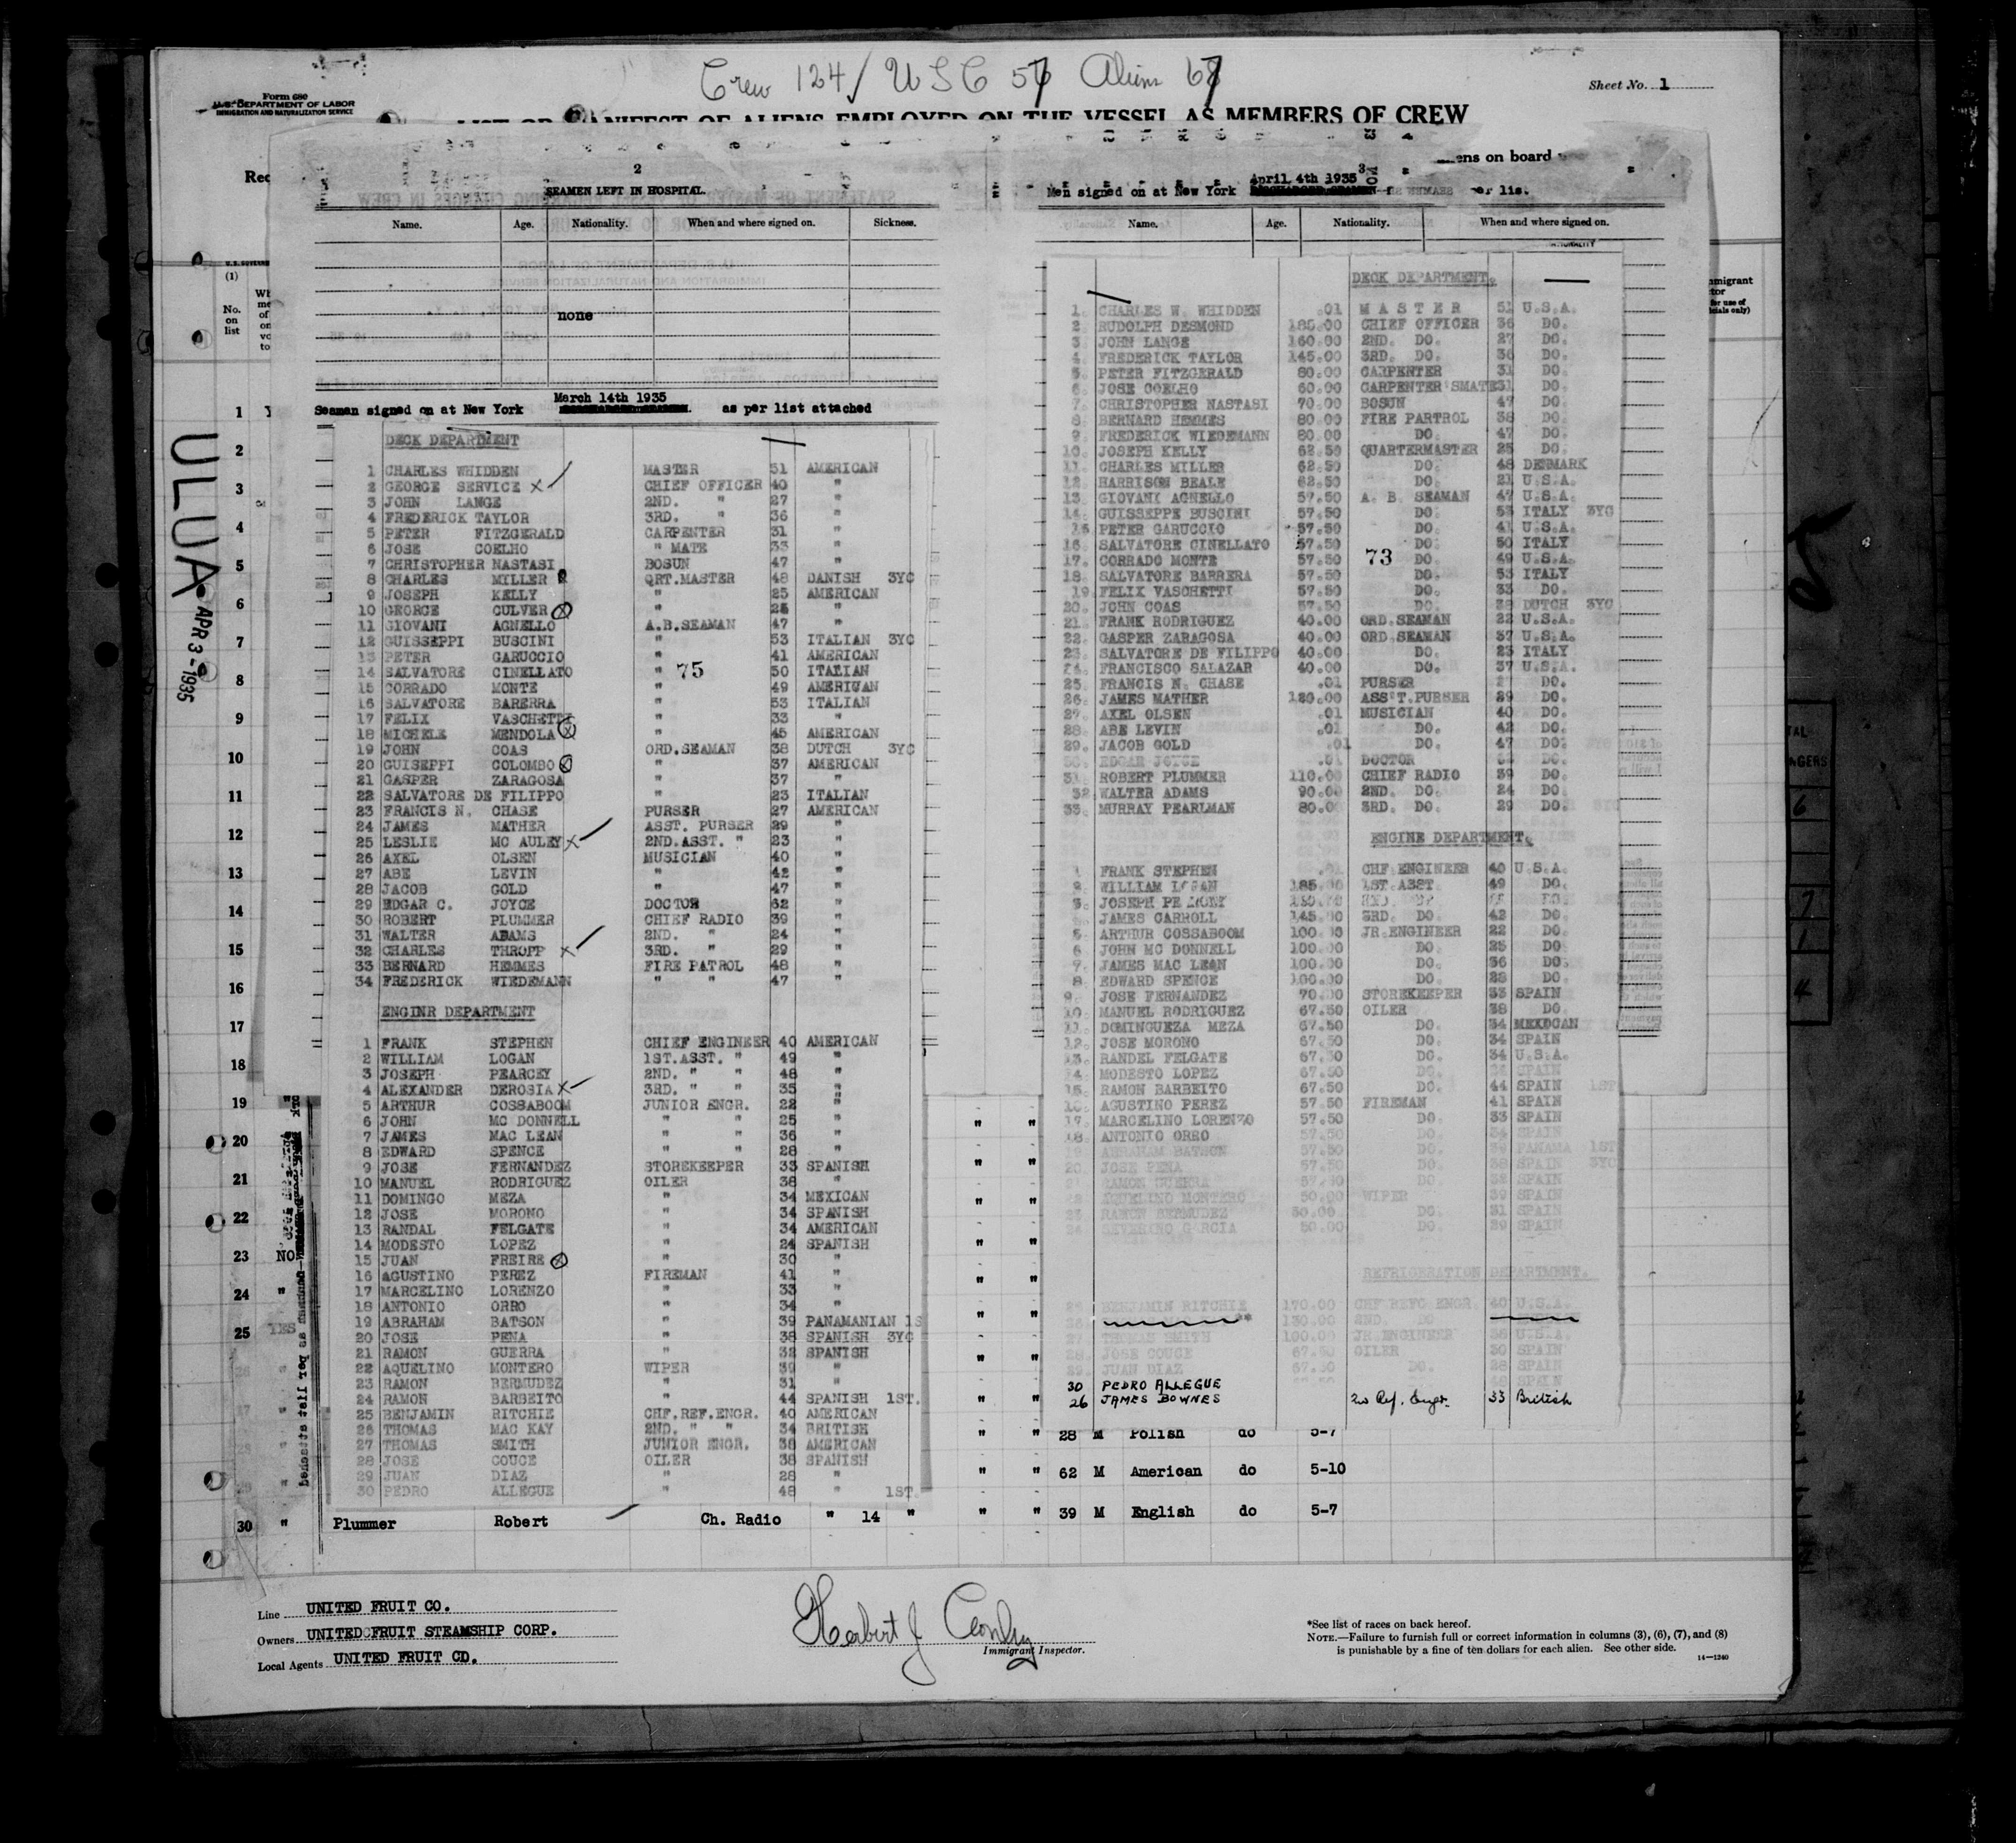 Crew 124/ USC 57 Aliens 67
Form 680
U.S. DEPARTMENT OF LABOR
IMMIGRATION AND NATURALIZATION SERVICE
Sheet No. 1
LIST OR MANIFEST OF ALIENS EMPLOYED ON THE VESSEL AS MEMBERS OF CREW
2
SEAMEN LEFT IN HOSPITAL.
Name. Age. Nationality. When and where signed on. Sickness.
none
March 14th 1935
Seaman signed on at New York as per list attached
DECK DEPARTMENT
1 CHARLES WHIDDEN MASTER 51 AMERICAN
2 GEORGE SERVICE X CHIEF OFFICER 40 "
3 JOHN LANGE 2ND. " 27 "
4 FREDERICK TAYLOR 3RD. " 36 "
5 PETER FITZGERALD CARPENTER 31 "
6 JOSE COELHO " MATE 33 "
7 CHRISTOPHER NASTASI BOSUN 47 "
8 CHARLES MILLER QRT.MASTER 48 DANISH 3YC
9 JOSEPH KELLY " 25 AMERICAN
10 GEORGE CULVER " 25 "
11 GIOVANI AGNELLO A.B.SEAMAN 47 "
12 GUISSEPPI BUSCINI " 53 ITALIAN 3YC
13 PETER GARUCCIO " 41 AMERICAN
14 SALVATORE CINELLATO " 50 ITALIAN
75
15 CORRADO MONTE " 49 AMERICAN
16 SALVATORE BARERRA " 53 ITALIAN
17 FELIX VASCHETTI " 33 "
18 MICHELE MENDOLA " 45 AMERICAN
19 JOHN COAS ORD.SEAMAN 38 DUTCH 3YC
20 GUISEPPI COLOMBO " 37 AMERICAN
21 GASPER ZARAGOSA " 37 "
22 SALVATORE DE FILIPPO " 23 ITALIAN
23 FRANCIS N. CHASE PURSER 27 AMERICAN
24 JAMES MATHER ASST. PURSER 29 "
25 LESLIE MC AULEY X 2ND.ASST. " 23 "
26 AXEL OLSEN MUSICIAN 40 "
27 ABE LEVIN " 42 "
28 JACOB GOLD " 47 "
29 EDGAR C. JOYCE DOCTOR 62 "
30 ROBERT PLUMMER CHIEF RADIO 39 "
31 WALTER ADAMS 2ND. " 24 "
32 CHARLES THROPP X 3RD. " 29 "
33 BERNARD HEMMES FIRE PATROL 48 "
34 FREDERICK WIEDEMANN " " 47 "
ENGINR DEPARTMENT
1 FRANK STEPHEN CHIEF ENGINEER 40 AMERICAN
2 WILLIAM LOGAN 1ST.ASST. " 49 "
3 JOSEPH PEARCEY 2ND. " " 48 "
4 ALEXANDER DEROSIA X 3RD. " " 35 "
5 ARTHUR COSSABOOM JUNIOR ENGR. 22 "
6 JOHN MC DONNELL " " 25 "
7 JAMES MAC LEAN " " 36 "
8 EDWARD SPENCE " " 28 "
9 JOSE FERNANDEZ STOREKEEPER 33 SPANISH
10 MANUEL RODRIGUEZ OILER 38 "
11 DOMINGO MEZA " 34 MEXICAN
12 JOSE MORONO " 34 SPANISH
13 RANDAL FELGATE " 34 AMERICAN
14 MODESTO LOPEZ " 24 SPANISH
15 JUAN FREIRE " 30 "
16 AGUSTINO PEREZ FIREMAN 41 "
17 MARCELINO LORENZO " 33 "
18 ANTONIO ORRO " 34 "
19 ABRAHAM BATSON " 39 PANAMANIAN 1S
20 JOSE PENA " 38 SPANISH 3YC
21 RAMON GUERRA " 32 SPANISH
22 AQUELINO MONTERO WIPER 39 "
23 RAMON BERMUDEZ " 31 "
24 RAMON BARBEITO " 44 SPANISH 1ST.
25 BENJAMIN RITCHIE CHF.REF.ENGR. 40 AMERICAN
26 THOMAS MAC KAY 2ND. " " 34 BRITISH
27 THOMAS SMITH JUNIOR ENGR. 38 AMERICAN
28 JOSE COUCE OILER 38 SPANISH
29 JUAN DIAZ " 28 "
30 PEDRO ALLEGUE " 48 " 1ST.
3
ens on board
Men signed on at New York April 4th 1935 per list
Name. Age. Nationality. When and where signed on.
DECK DEPARTMENT.
1. CHARLES W. WHIDDEN .01 MASTER 51 U.S.A.
2. RUDOLPH DESMOND 185.00 CHIEF OFFICER 36 DO.
3 JOHN LANGE 160.00 2ND. DO. 27 DO.
4. FREDERICK TAYLOR 145.00 3RD. DO. 36 DO.
5. PETER FITZGERALD 80.00 CARPENTER 31 DO.
6. JOSE COELHO 60.00 CARPENTER'SMATE 31 DO.
7. CHRISTOPHER NASTASI 70.00 BOSUN 47 DO.
8. BERNARD HEMMES 80.00 FIRE PARTROL 38 DO.
9. FREDERICK WIEDEMANN 80.00 DO. 47 DO.
10. JOSEPH KELLY 62.50 QUARTERMASTER 25 DO.
11. CHARLES MILLER 62.50 DO. 48 DENMARK
12. HARRISON BEALE 62.50 DO. 21 U.S.A.
13. GIOVANI AGNELLO 57.50 A. B. SEAMAN 47 U.S.A.
14. GUISSEPPE BUSCINI 57.50 DO. 53 ITALY 3YC
15 PETER GARUCCIO 57.50 DO. 41 U.S.A.
16. SALVATORE CINELLATO 57.50 DO. 50 ITALY
73
17. CORRADO MONTE 57.50 DO. 49 U.S.A.
18. SALVATORE BARRERA 57.50 DO. 53 ITALY
19. FELIX VASCHETTI 57.50 DO. 33 DO.
20. JOHN COAS 57.50 DO. 38 DUTCH 3YC
21. FRANK RODRIGUEZ 40.00 ORD.SEAMAN 22 U.S.A.
22. GASPER ZARAGOSA 40.00 ORD.SEAMAN 37 U.S.A.
23. SALVATORE DE FILIPPO 40.00 DO. 23 ITALY
24. FRANCISCO SALAZAR 40.00 DO. 37 U.S.A.
25. FRANCIS N. CHASE .01 PURSER 27 DO.
26. JAMES MATHER 120.00 ASS'T.PURSER 29 DO.
27. AXEL OLSEN .01 MUSICIAN 40 DO.
28. ABE LEVIN .01 DO. 42 DO.
29. JACOB GOLD .01 DO. 47 DO.
30. EDGAR JOYCE .01 DOCTOR DO.
31. ROBERT PLUMMER 110.00 CHIEF RADIO 39 DO.
32 WALTER ADAMS 90.00 2ND. DO. 24 DO.
33. MURRAY PEARLMAN 80.00 3RD. DO. 29 DO.
ENGINE DEPARTMENT.
1 FRANK STEPHEN .01 CHF ENGINEER 40 U.S.A.
2. WILLIAM LOGAN 185.00 1ST.ASST. 49 DO.
3. JOSEPH DO
JAMES CARROLL 145.00 3RD. DO. 42 DO.
5 ARTHUR COSSABOOM 100.00 JR.ENGINEER 22 DO.
6 JOHN MC DONNELL 100.00 DO. 25 DO.
7. JAMES MAC LEAN 100.00 DO. 36 DO.
8 EDWARD SPENCE 100.00 DO. 28 DO.
9. JOSE FERNANDEZ 70.00 STOREKEEPER 33 SPAIN
10. MANUEL RODRIGUEZ 67.50 OILER 38 DO.
11. DOMINGUEZA MEZA 67.50 DO. 34 MEXOCAN
12. JOSE MORONO 67.50 DO. 34 SPAIN
13. RANDEL FELGATE 67.50 DO. 34 U.S.A.
14 MODESTO LOPEZ 67.50 DO. SPAIN
15. RAMON BARBEITO 67.50 DO. 44 SPAIN 1ST
16. AGUSTINO PEREZ 57.50 FIREMAN 41 SPAIN
17. MARCELINO LORENZO 57.50 DO. 33 SPAIN
18. ANTONIO ORRO 57.50 DO. 34 SPAIN
19 ABRAHAM BATSON 57.50 DO. 39 PANAMA 1ST
20. JOSE PENA 57.50 DO. 38 SPAIN 3YC
21 RAMON GUERRA 57.50 DO. 32 SPAIN
22 AQUELINO MONTERO 50.00 WIPER 39 SPAIN
23 RAMON BERMUDEZ 50.00 DO. 31 SPAIN
24 SEVERINO GARCIA 50.00 DO. 29 SPAIN
REFRIGERATION DEPARTMENT.
25 BENJAMIN RITCHIE 170.00 CHF REFG ENGR. 40 U.S.A.
130.00 2ND. DO
27 THOMAS SMITH 100.00 JR.ENGINEER 38 U.S.A.
28. JOSE COUCE 67.50 OILER 30 SPAIN
29. JUAN DIAZ 67.50 DO. 28 SPAIN
30 PEDRO ALLEGUE
26 JAMES BOWNES 2nd Ref. Engr. 33 British
28 M Polish do 5-7
62 M American do 5-10
39 M English do 5-7
30 " Plummer Robert Ch. Radio " 14 "
ULUA
APR 3 - 1935
(1)
No. on list
1
2
3
4
5
6
7
8
9
10
11
12
13
14
15
16
17
18
19
20
21
22
23 NO
24 "
25 YES
Line UNITED FRUIT CO.
Owners UNITED FRUIT STEAMSHIP CORP.
Local Agents UNITED FRUIT CO.
Herbert J Conley
Immigrant Inspector.
*See list of races on back hereof.
NOTE.—Failure to furnish full or correct information in columns (3), (6), (7), and (8)
is punishable by a fine of ten dollars for each alien. See other side.
14—1240